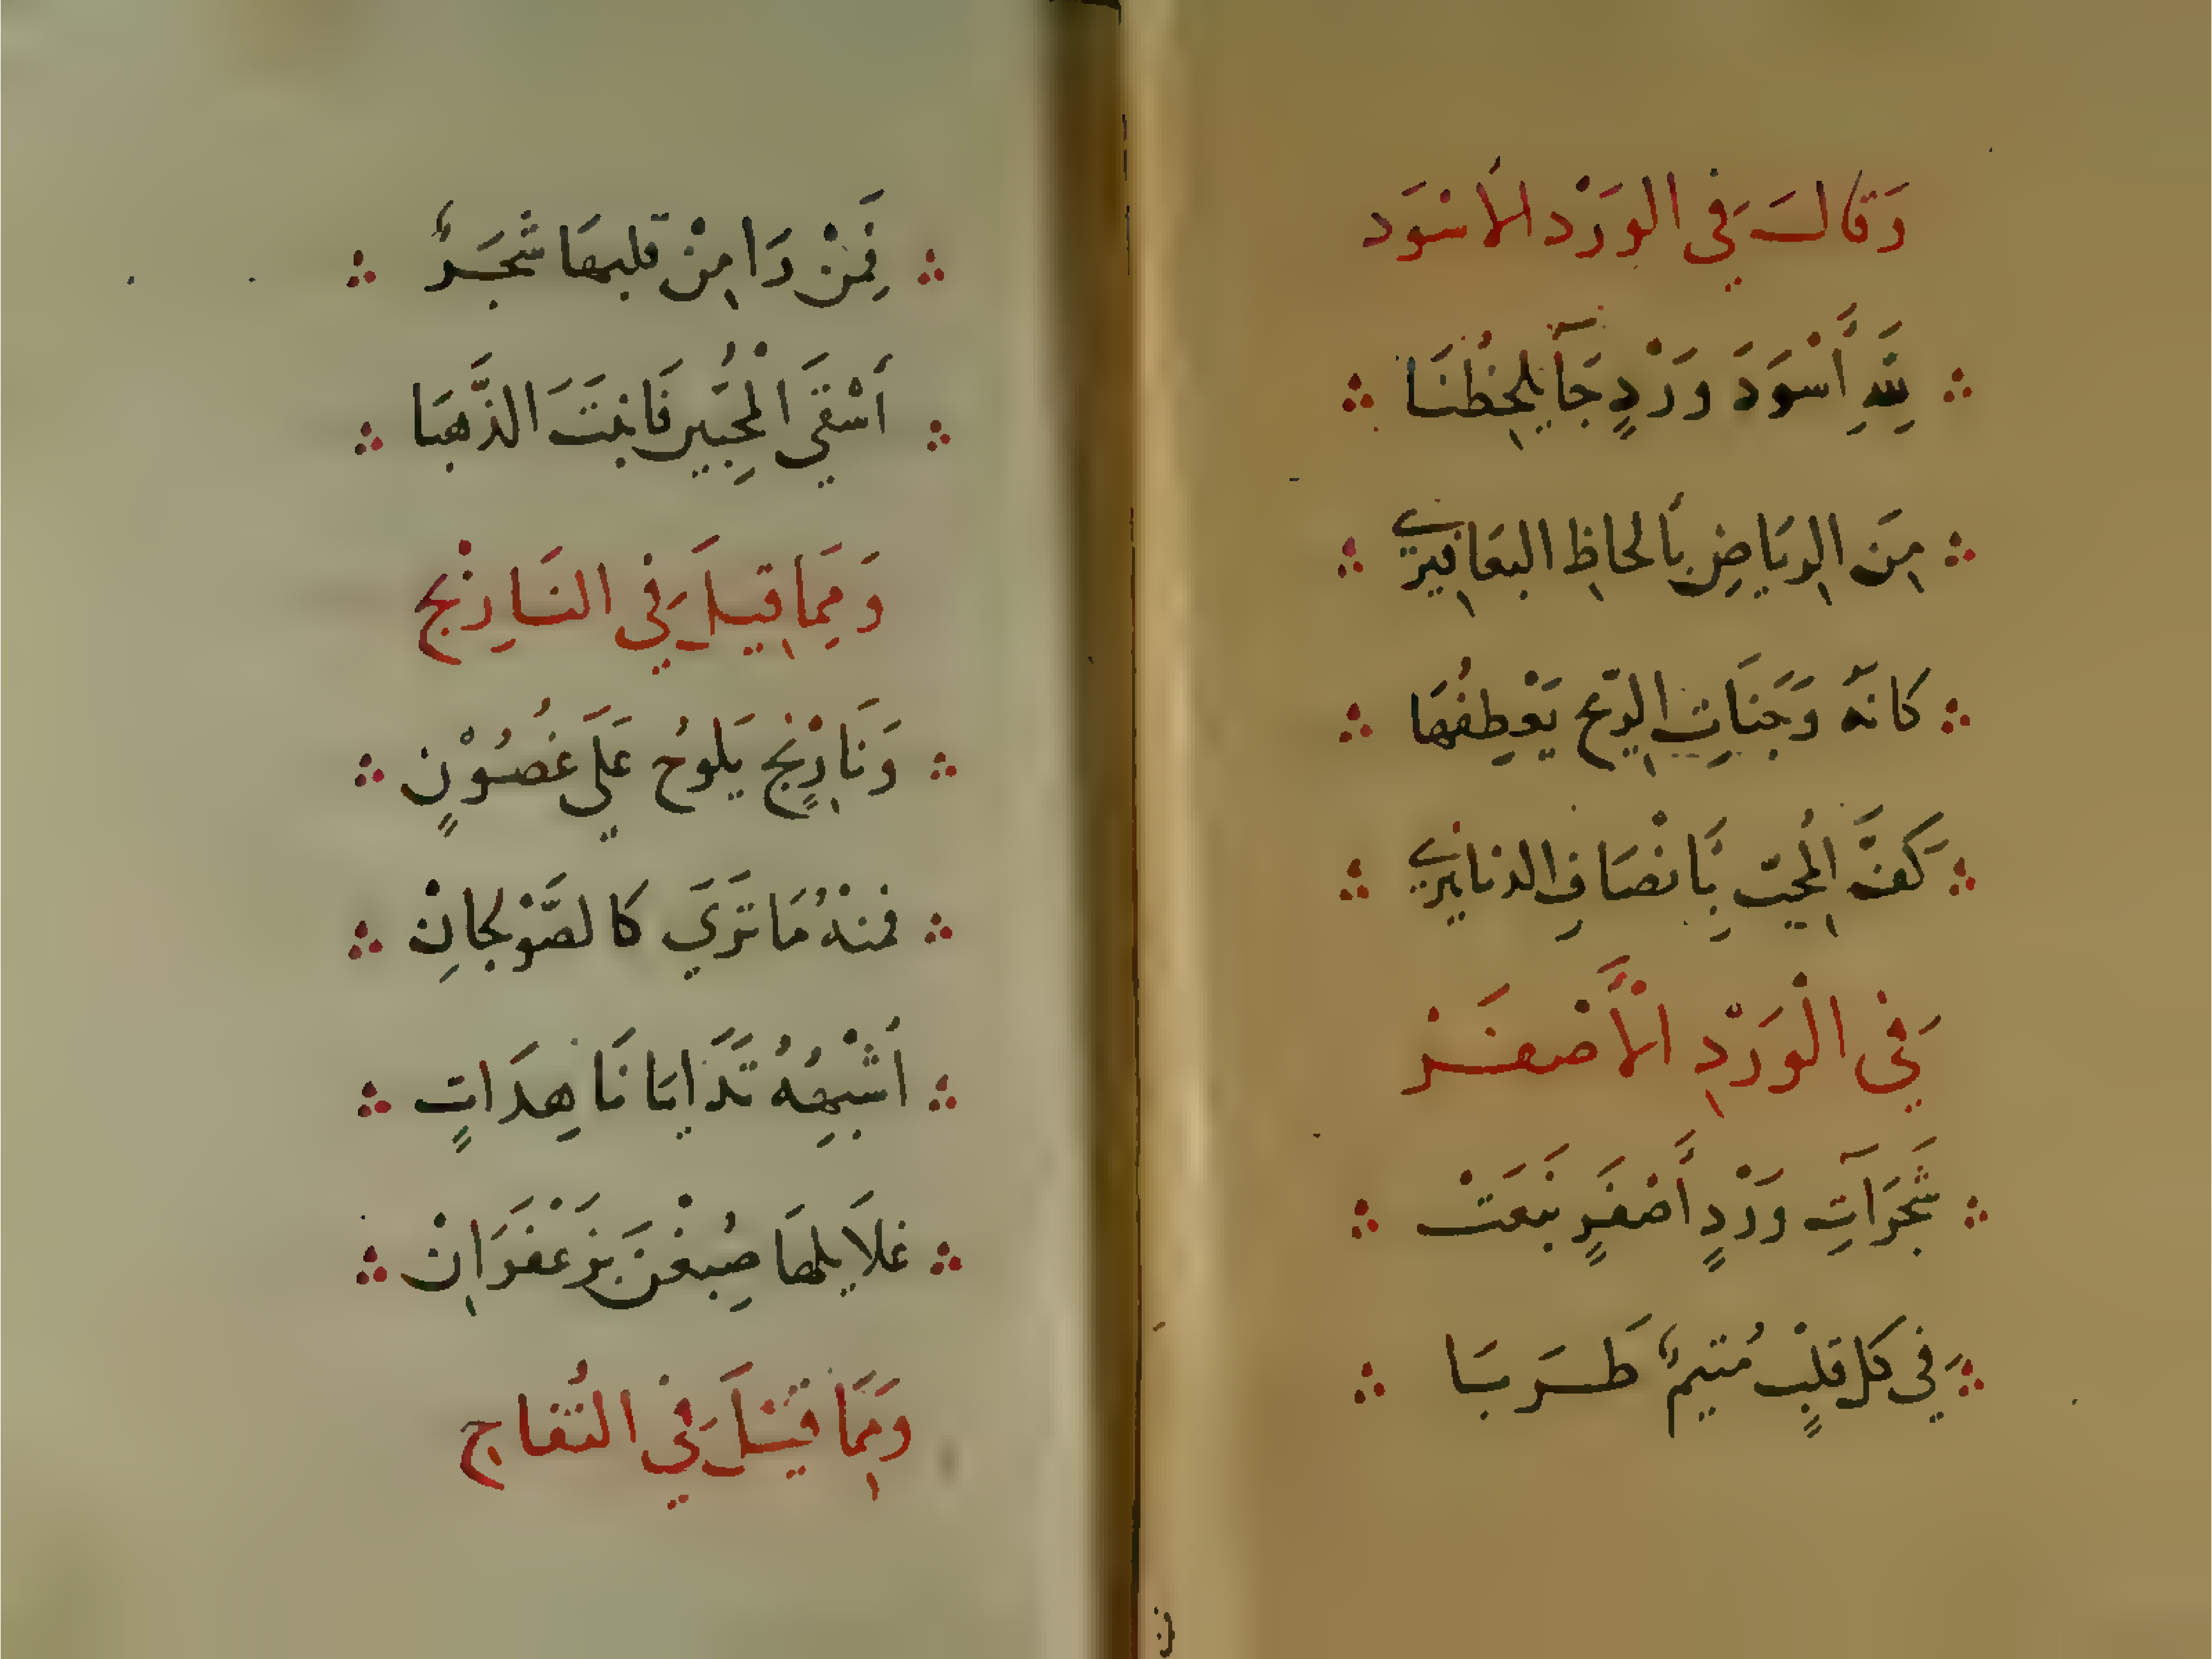 وَقَالَ فِي الوَرْد الأَسْوَد
لِلَّهِ أَسْوَدَ وَرْدٍ جَآ يَلْحَظُنَا
مِنَ الرِيَاضِ بِأَلحَاظِ اليَعَافِيرِ
كَانَهُ وَجَنَاتِ الرِيحِ يَعْطِفُهَا
كَفُّ المُحِبِّ بِأَنْصَافِ الدنانِيرِ
فِي الْوَرْدِ الأَصْفَرْ
شَجَرَآتِ وَرْدٍ أَصْفَرٍ بَعَثَتْ
فِي كل قلْبٍ مُتيمٍ طَرَبَا
فَمَنْ رَا مِنْ قَلبِهَا شَجَرٌ
أَسْقَيَ الْلُجَيْن فَانبَتَ الذَّهبَا
وَمِمَا قِيلَ فِي النَارِنْج
وَنَارِنْجٍ يَلوُحُ عَلَي غُصُوْنٍ
فمنهُ مَا تَرَي كَالصَّوْلجانِ
أُشْبِهُهُ ثَدَايَا نَاهِدَاتٍ
غلَايلهَا صُبِغْنَ بِزَعْفَرَانْ
وَمِمَا قِيْلَ فِي التُفاحِ